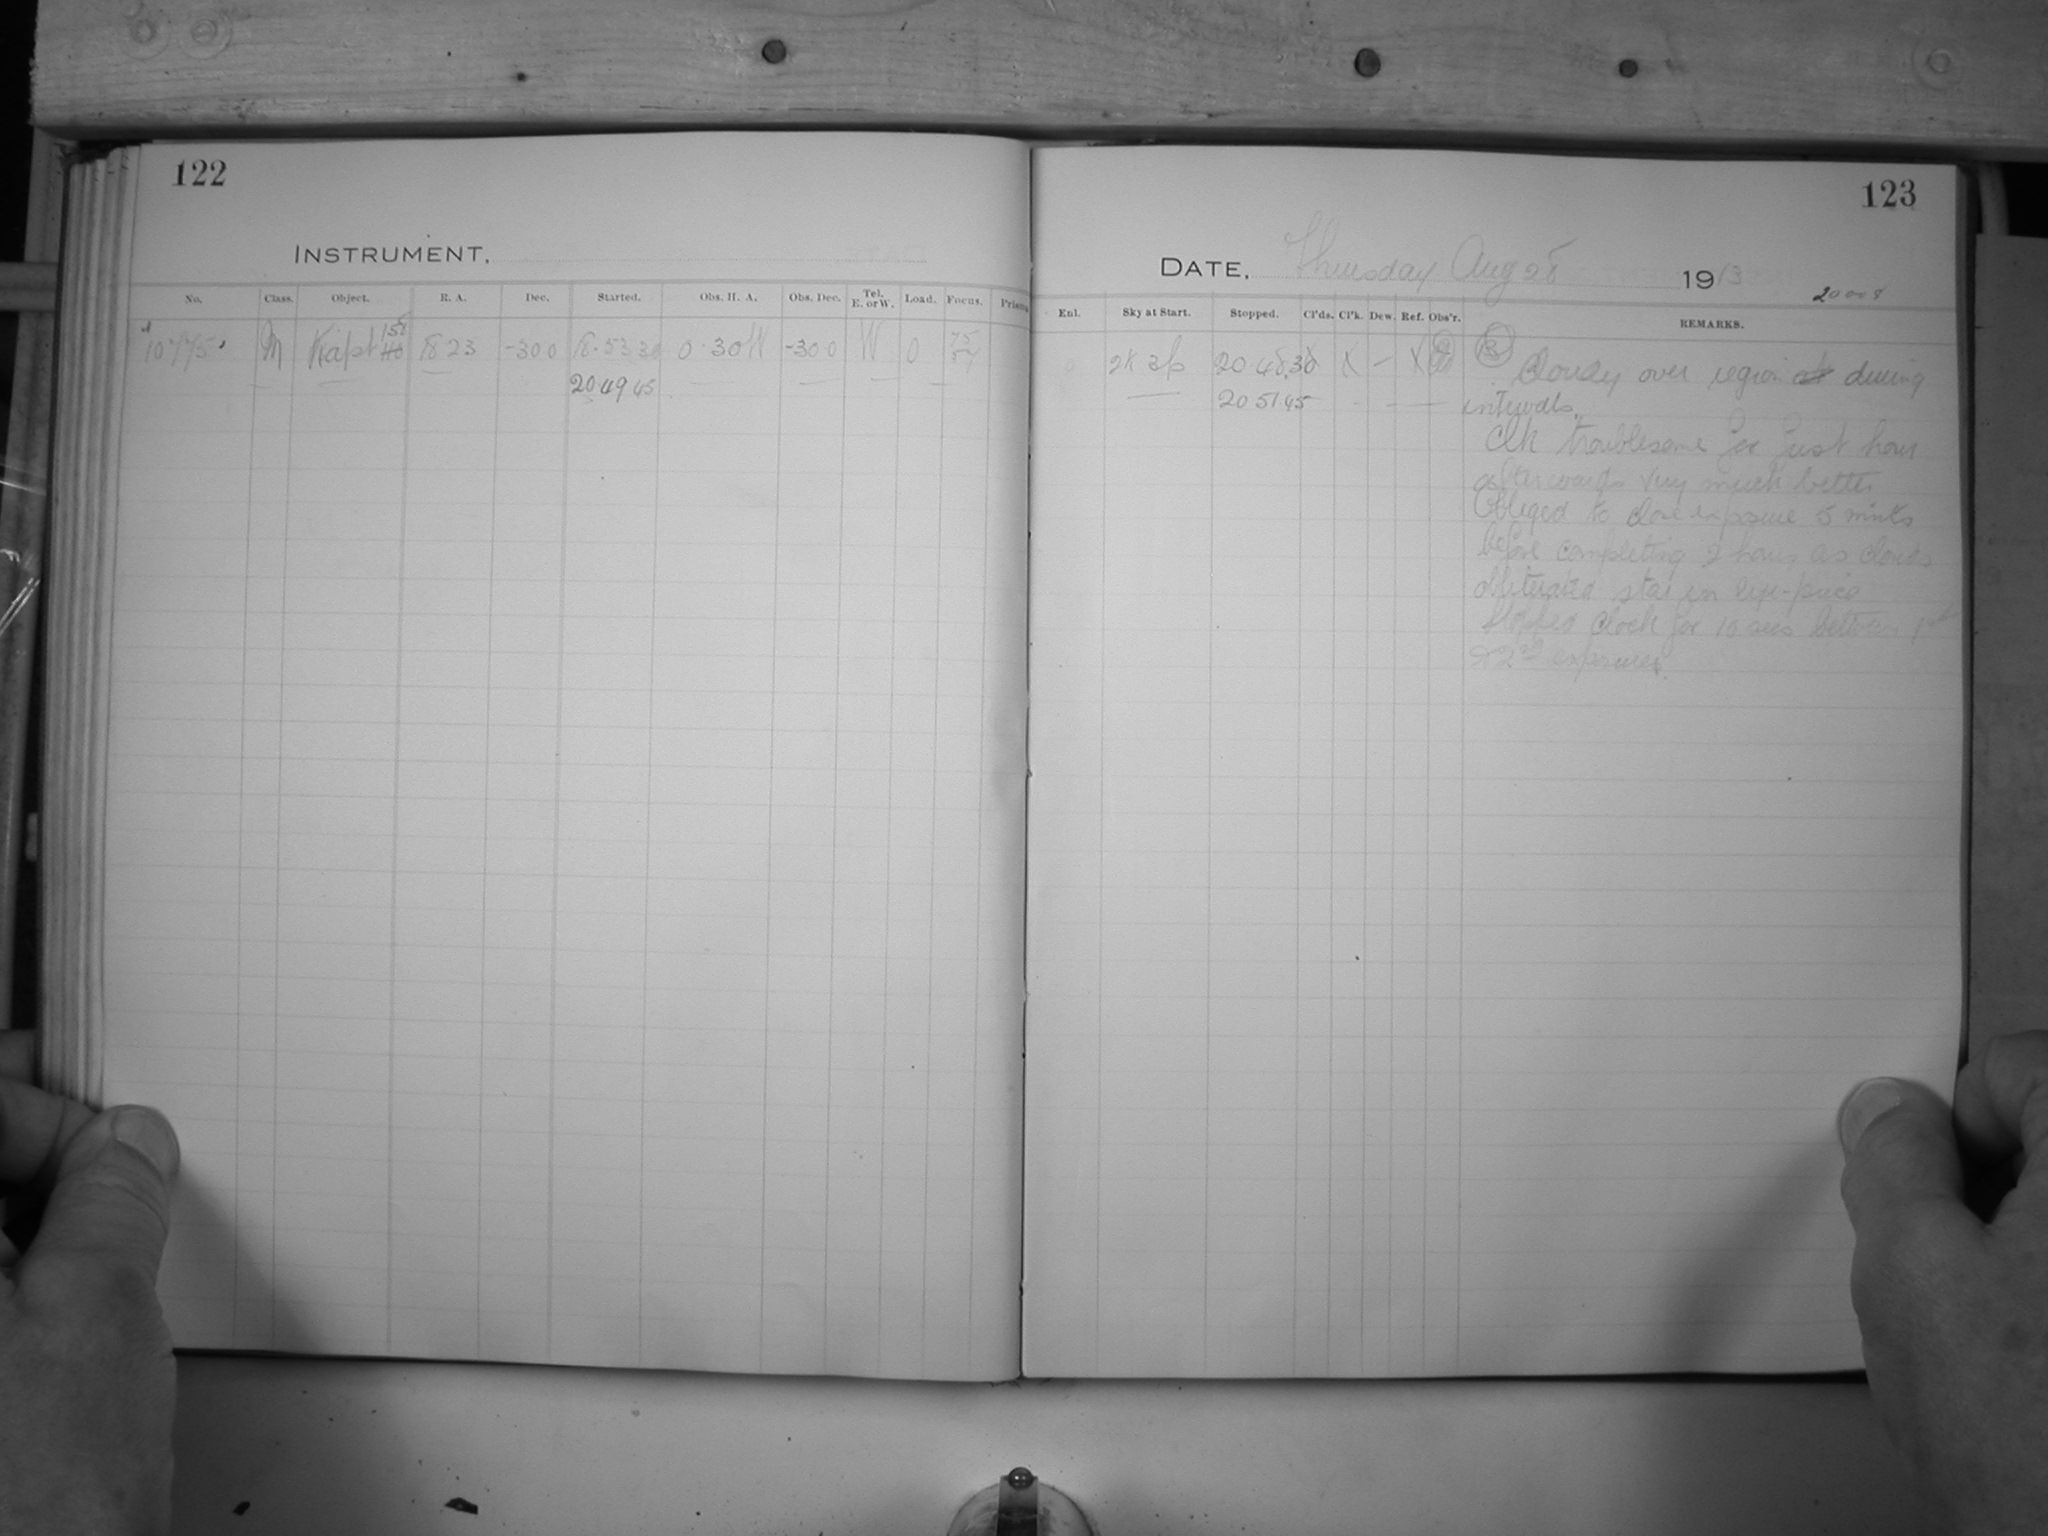 122
123
INSTRUMENT.
DATE. Thursday Aug 28 1913
20008
No. Class. Object. R. A. Dec. Started. Obs. H. A. Obs. Dec. Tel. E. or W. Load. Focus. Prisms
Enl. Sky at Start. Stopped. Cl'ds. Cl'k. Dew. Ref. Obs'r. REMARKS.
10775 M Kapt 158 18 23 -30 0 18.53.30 0.30 W -30 0 W 0 75
20 49 45
2k 3p 20.48.30 X – X
20 51 45
Cloudy over region during
intervals.
Clk troublesome for first hour
afterwards very much better
Obliged to close exposure 5 mints
before completing 2 hours as clouds
obliterated star in eye-piece
Stopped clock for 10 secs between 1st
& 2nd exposures.